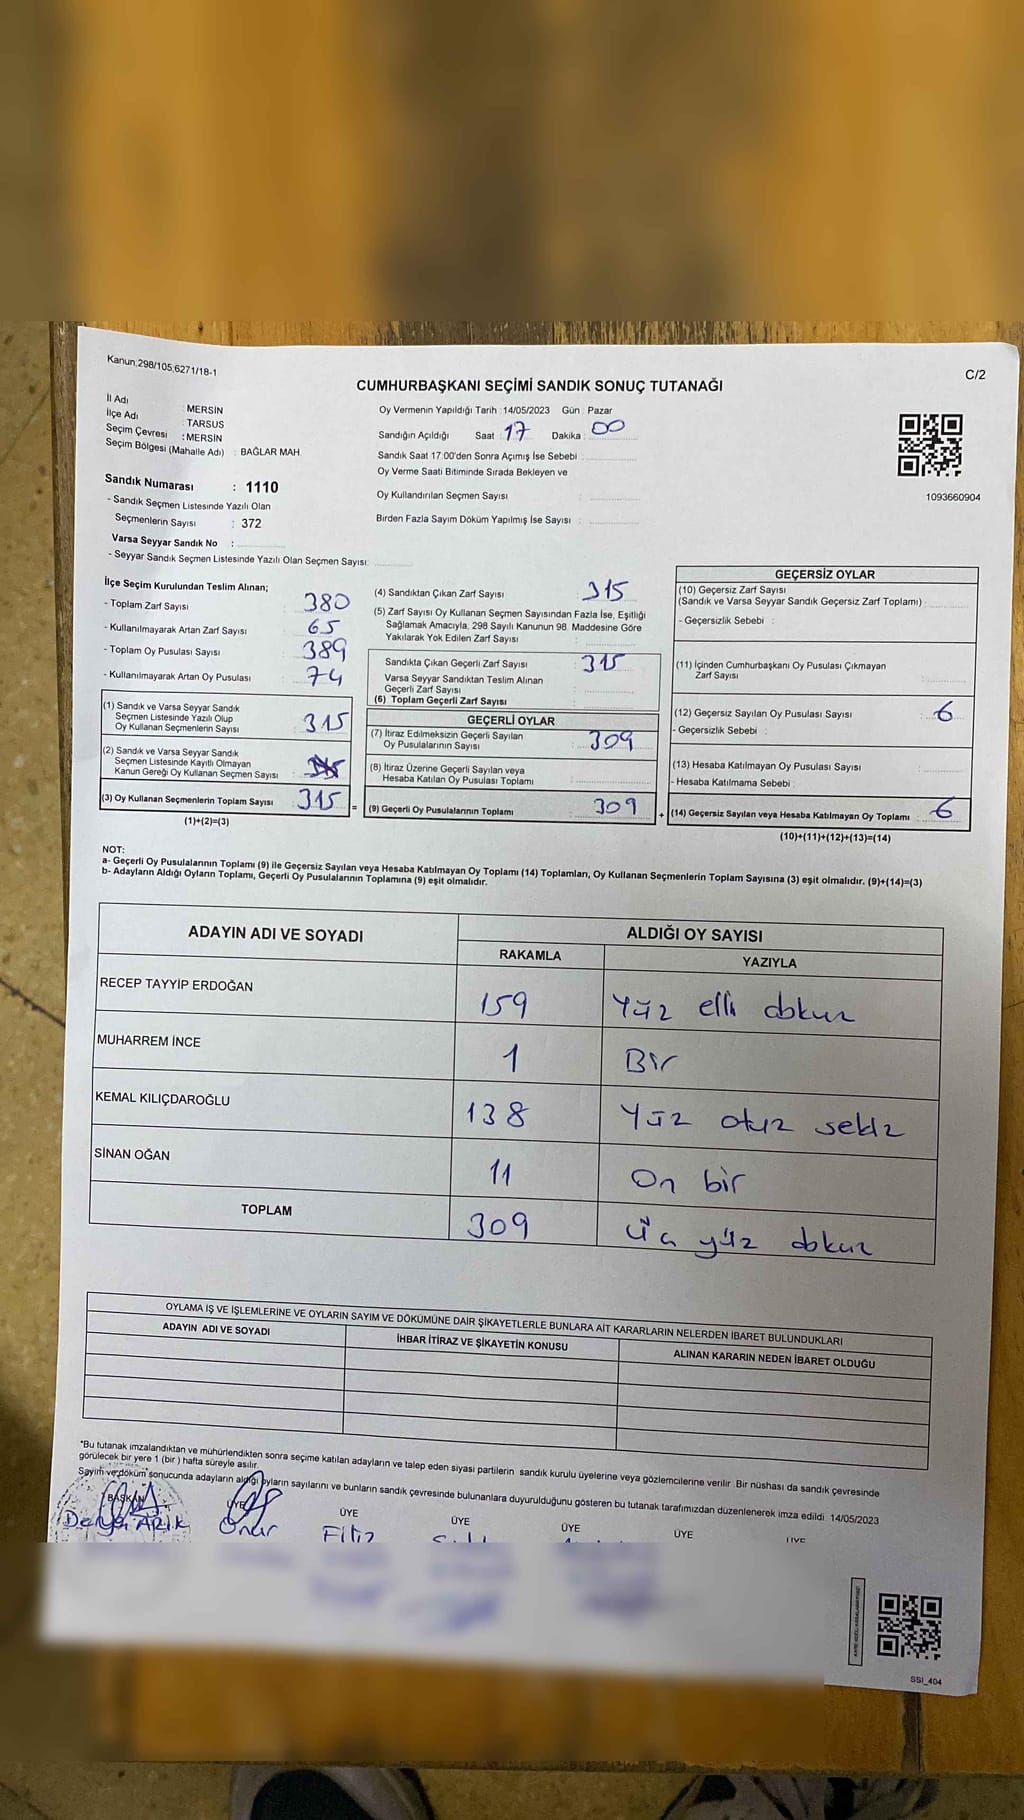 Kanun.298/105,6271/18-1
C/2
CUMHURBAŞKANI SEÇİMİ SANDIK SONUÇ TUTANAĞI
İl Adı : MERSİN
İlçe Adı : TARSUS
Seçim Çevresi : MERSİN
Seçim Bölgesi (Mahalle Adı) : BAĞLAR MAH.
Oy Vermenin Yapıldığı Tarih : 14/05/2023 Gün : Pazar
Sandığın Açıldığı Saat : 17 Dakika : 00
Sandık Saat 17:00'den Sonra Açımış İse Sebebi :
Oy Verme Saati Bitiminde Sırada Bekleyen ve
Oy Kullandırılan Seçmen Sayısı :
Birden Fazla Sayım Döküm Yapılmış İse Sayısı :
1093660904
Sandık Numarası : 1110
- Sandık Seçmen Listesinde Yazılı Olan
Seçmenlerin Sayısı : 372
Varsa Seyyar Sandık No :
- Seyyar Sandık Seçmen Listesinde Yazılı Olan Seçmen Sayısı:
İlçe Seçim Kurulundan Teslim Alınan;
- Toplam Zarf Sayısı : 380
- Kullanılmayarak Artan Zarf Sayısı : 65
- Toplam Oy Pusulası Sayısı : 389
- Kullanılmayarak Artan Oy Pusulası : 74
(1) Sandık ve Varsa Seyyar Sandık
Seçmen Listesinde Yazılı Olup
Oy Kullanan Seçmenlerin Sayısı : 315
(2) Sandık ve Varsa Seyyar Sandık
Seçmen Listesinde Kayıtlı Olmayan
Kanun Gereği Oy Kullanan Seçmen Sayısı :
(3) Oy Kullanan Seçmenlerin Toplam Sayısı : 315 =
(1)+(2)=(3)
(4) Sandıktan Çıkan Zarf Sayısı : 315
(5) Zarf Sayısı Oy Kullanan Seçmen Sayısından Fazla İse, Eşitliği
Sağlamak Amacıyla, 298 Sayılı Kanunun 98. Maddesine Göre
Yakılarak Yok Edilen Zarf Sayısı :
Sandıkta Çıkan Geçerli Zarf Sayısı : 315
Varsa Seyyar Sandıktan Teslim Alınan
Geçerli Zarf Sayısı :
(6) Toplam Geçerli Zarf Sayısı :
GEÇERLİ OYLAR
(7) İtiraz Edilmeksizin Geçerli Sayılan
Oy Pusulalarının Sayısı : 309
(8) İtiraz Üzerine Geçerli Sayılan veya
Hesaba Katılan Oy Pusulası Toplamı :
(9) Geçerli Oy Pusulalarının Toplamı : 309 +
GEÇERSİZ OYLAR
(10) Geçersiz Zarf Sayısı
(Sandık ve Varsa Seyyar Sandık Geçersiz Zarf Toplamı) :
- Geçersizlik Sebebi :
(11) İçinden Cumhurbaşkanı Oy Pusulası Çıkmayan
Zarf Sayısı :
(12) Geçersiz Sayılan Oy Pusulası Sayısı : 6
- Geçersizlik Sebebi :
(13) Hesaba Katılmayan Oy Pusulası Sayısı :
- Hesaba Katılmama Sebebi :
(14) Geçersiz Sayılan veya Hesaba Katılmayan Oy Toplamı : 6
(10)+(11)+(12)+(13)=(14)
NOT:
a- Geçerli Oy Pusulalarının Toplamı (9) ile Geçersiz Sayılan veya Hesaba Katılmayan Oy Toplamı (14) Toplamları, Oy Kullanan Seçmenlerin Toplam Sayısına (3) eşit olmalıdır. (9)+(14)=(3)
b- Adayların Aldığı Oyların Toplamı, Geçerli Oy Pusulalarının Toplamına (9) eşit olmalıdır.
ADAYIN ADI VE SOYADI
ALDIĞI OY SAYISI
RAKAMLA YAZIYLA
RECEP TAYYİP ERDOĞAN 159 Yüz elli dokuz
MUHARREM İNCE 1 Bir
KEMAL KILIÇDAROĞLU 138 Yüz otuz sekiz
SİNAN OĞAN 11 On bir
TOPLAM 309 Üç yüz dokuz
OYLAMA İŞ VE İŞLEMLERİNE VE OYLARIN SAYIM VE DÖKÜMÜNE DAİR ŞİKAYETLERLE BUNLARA AİT KARARLARIN NELERDEN İBARET BULUNDUKLARI
ADAYIN ADI VE SOYADI İHBAR İTİRAZ VE ŞİKAYETİN KONUSU ALINAN KARARIN NEDEN İBARET OLDUĞU
*Bu tutanak imzalandıktan ve mühürlendikten sonra seçime katılan adayların ve talep eden siyasi partilerin sandık kurulu üyelerine veya gözlemcilerine verilir. Bir nüshası da sandık çevresinde
görülecek bir yere 1 (bir) hafta süreyle asılır.
Sayım ve döküm sonucunda adayların aldığı oyların sayılarını ve bunların sandık çevresinde bulunanlara duyurulduğunu gösteren bu tutanak tarafımızdan düzenlenerek imza edildi. 14/05/2023
BAŞKAN ÜYE ÜYE ÜYE ÜYE ÜYE ÜYE
Derya ARIK Onur Filiz
SSI_404